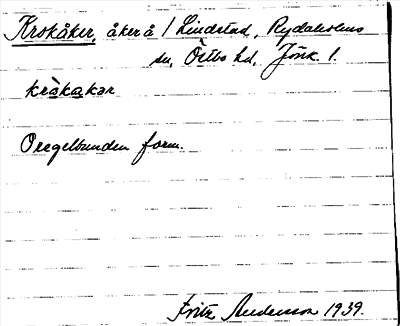 Krokåker, åker å 1 Lindstad, Rydaholms
sn, Östbo hd, Jönk. l.
kråkakær
Oregelbunden form.
Fritz Andersson 1939.